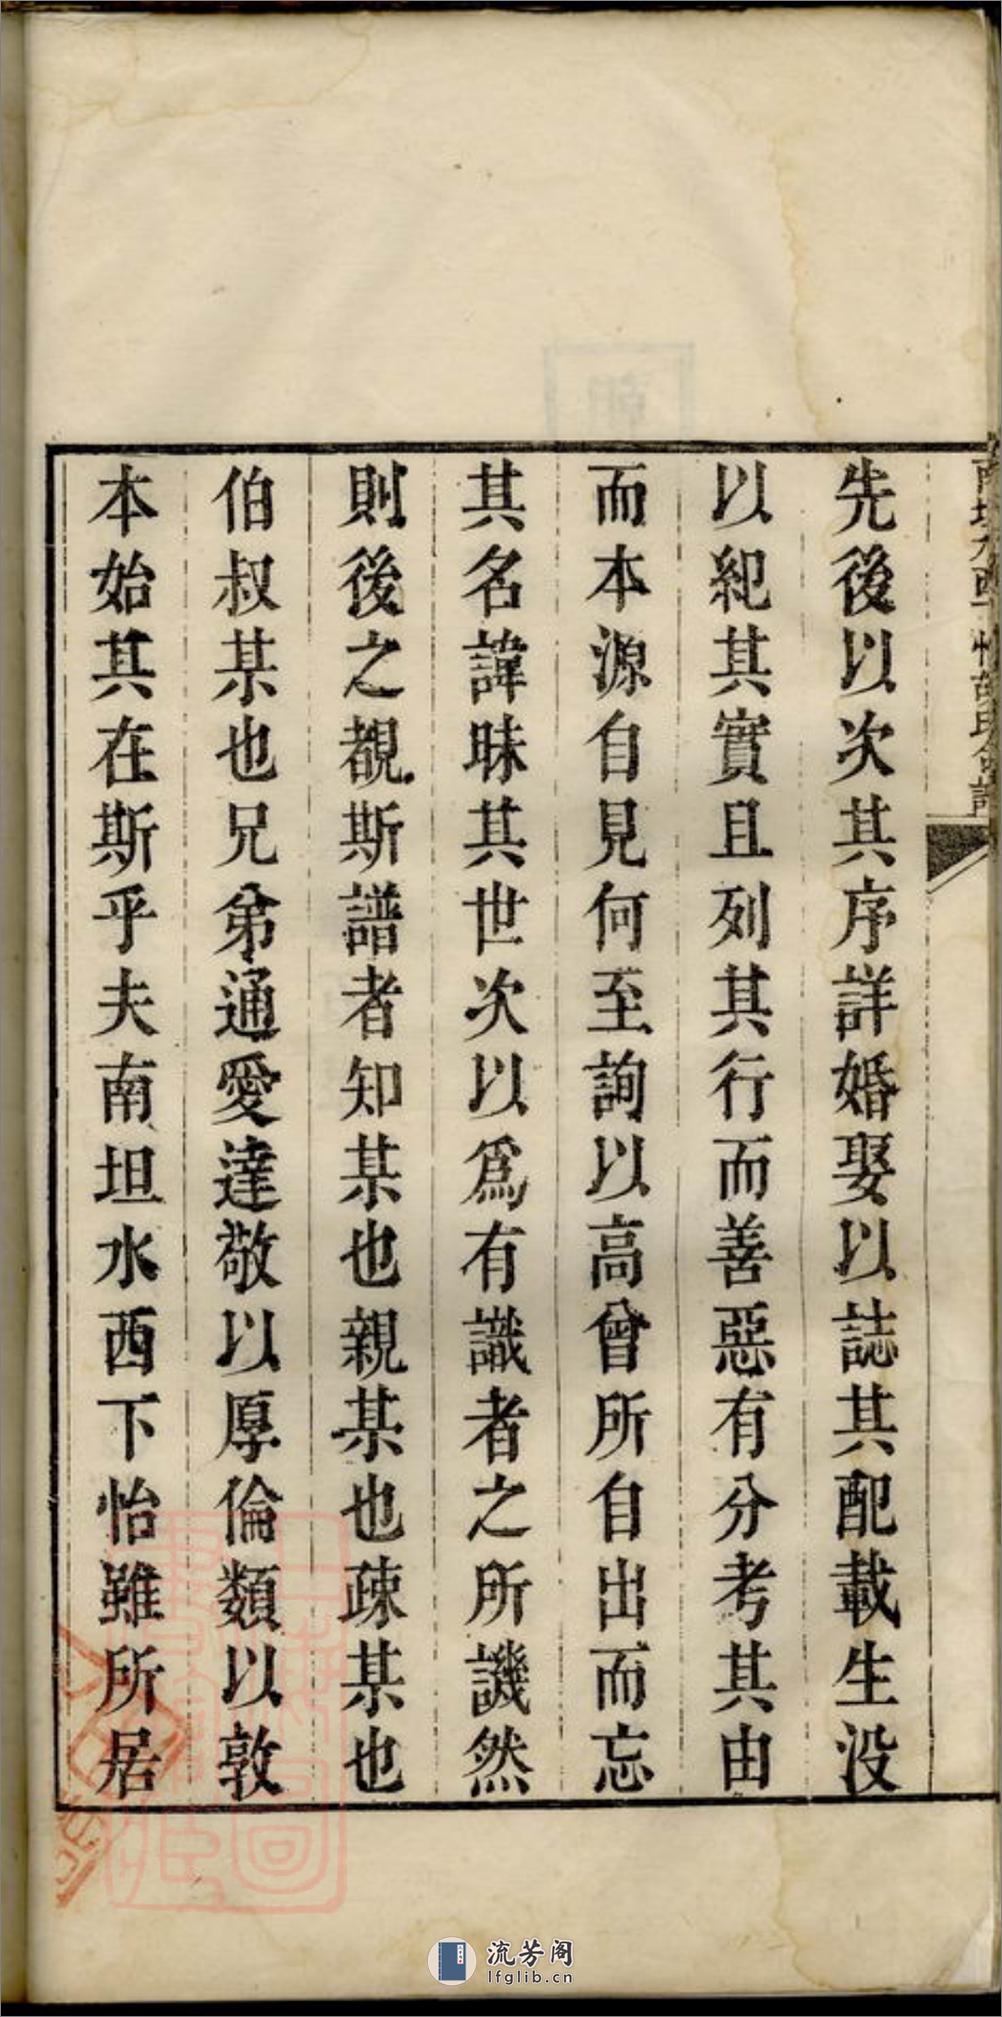 先後以次其序詳婚娶以誌其配載生没
以紀其實且列其行而善惡有分考其由
而本源自見何至詢以高曾所自出而忘
其名諱昧其世次以爲有識者之所譏然
則後之覩斯譜者知某也親某也疎某也
伯叔某也兄弟通愛達敬以厚倫類以敦
本始其在斯乎夫南坦水西下怡雖所居
流芳阁
lfglib.cn